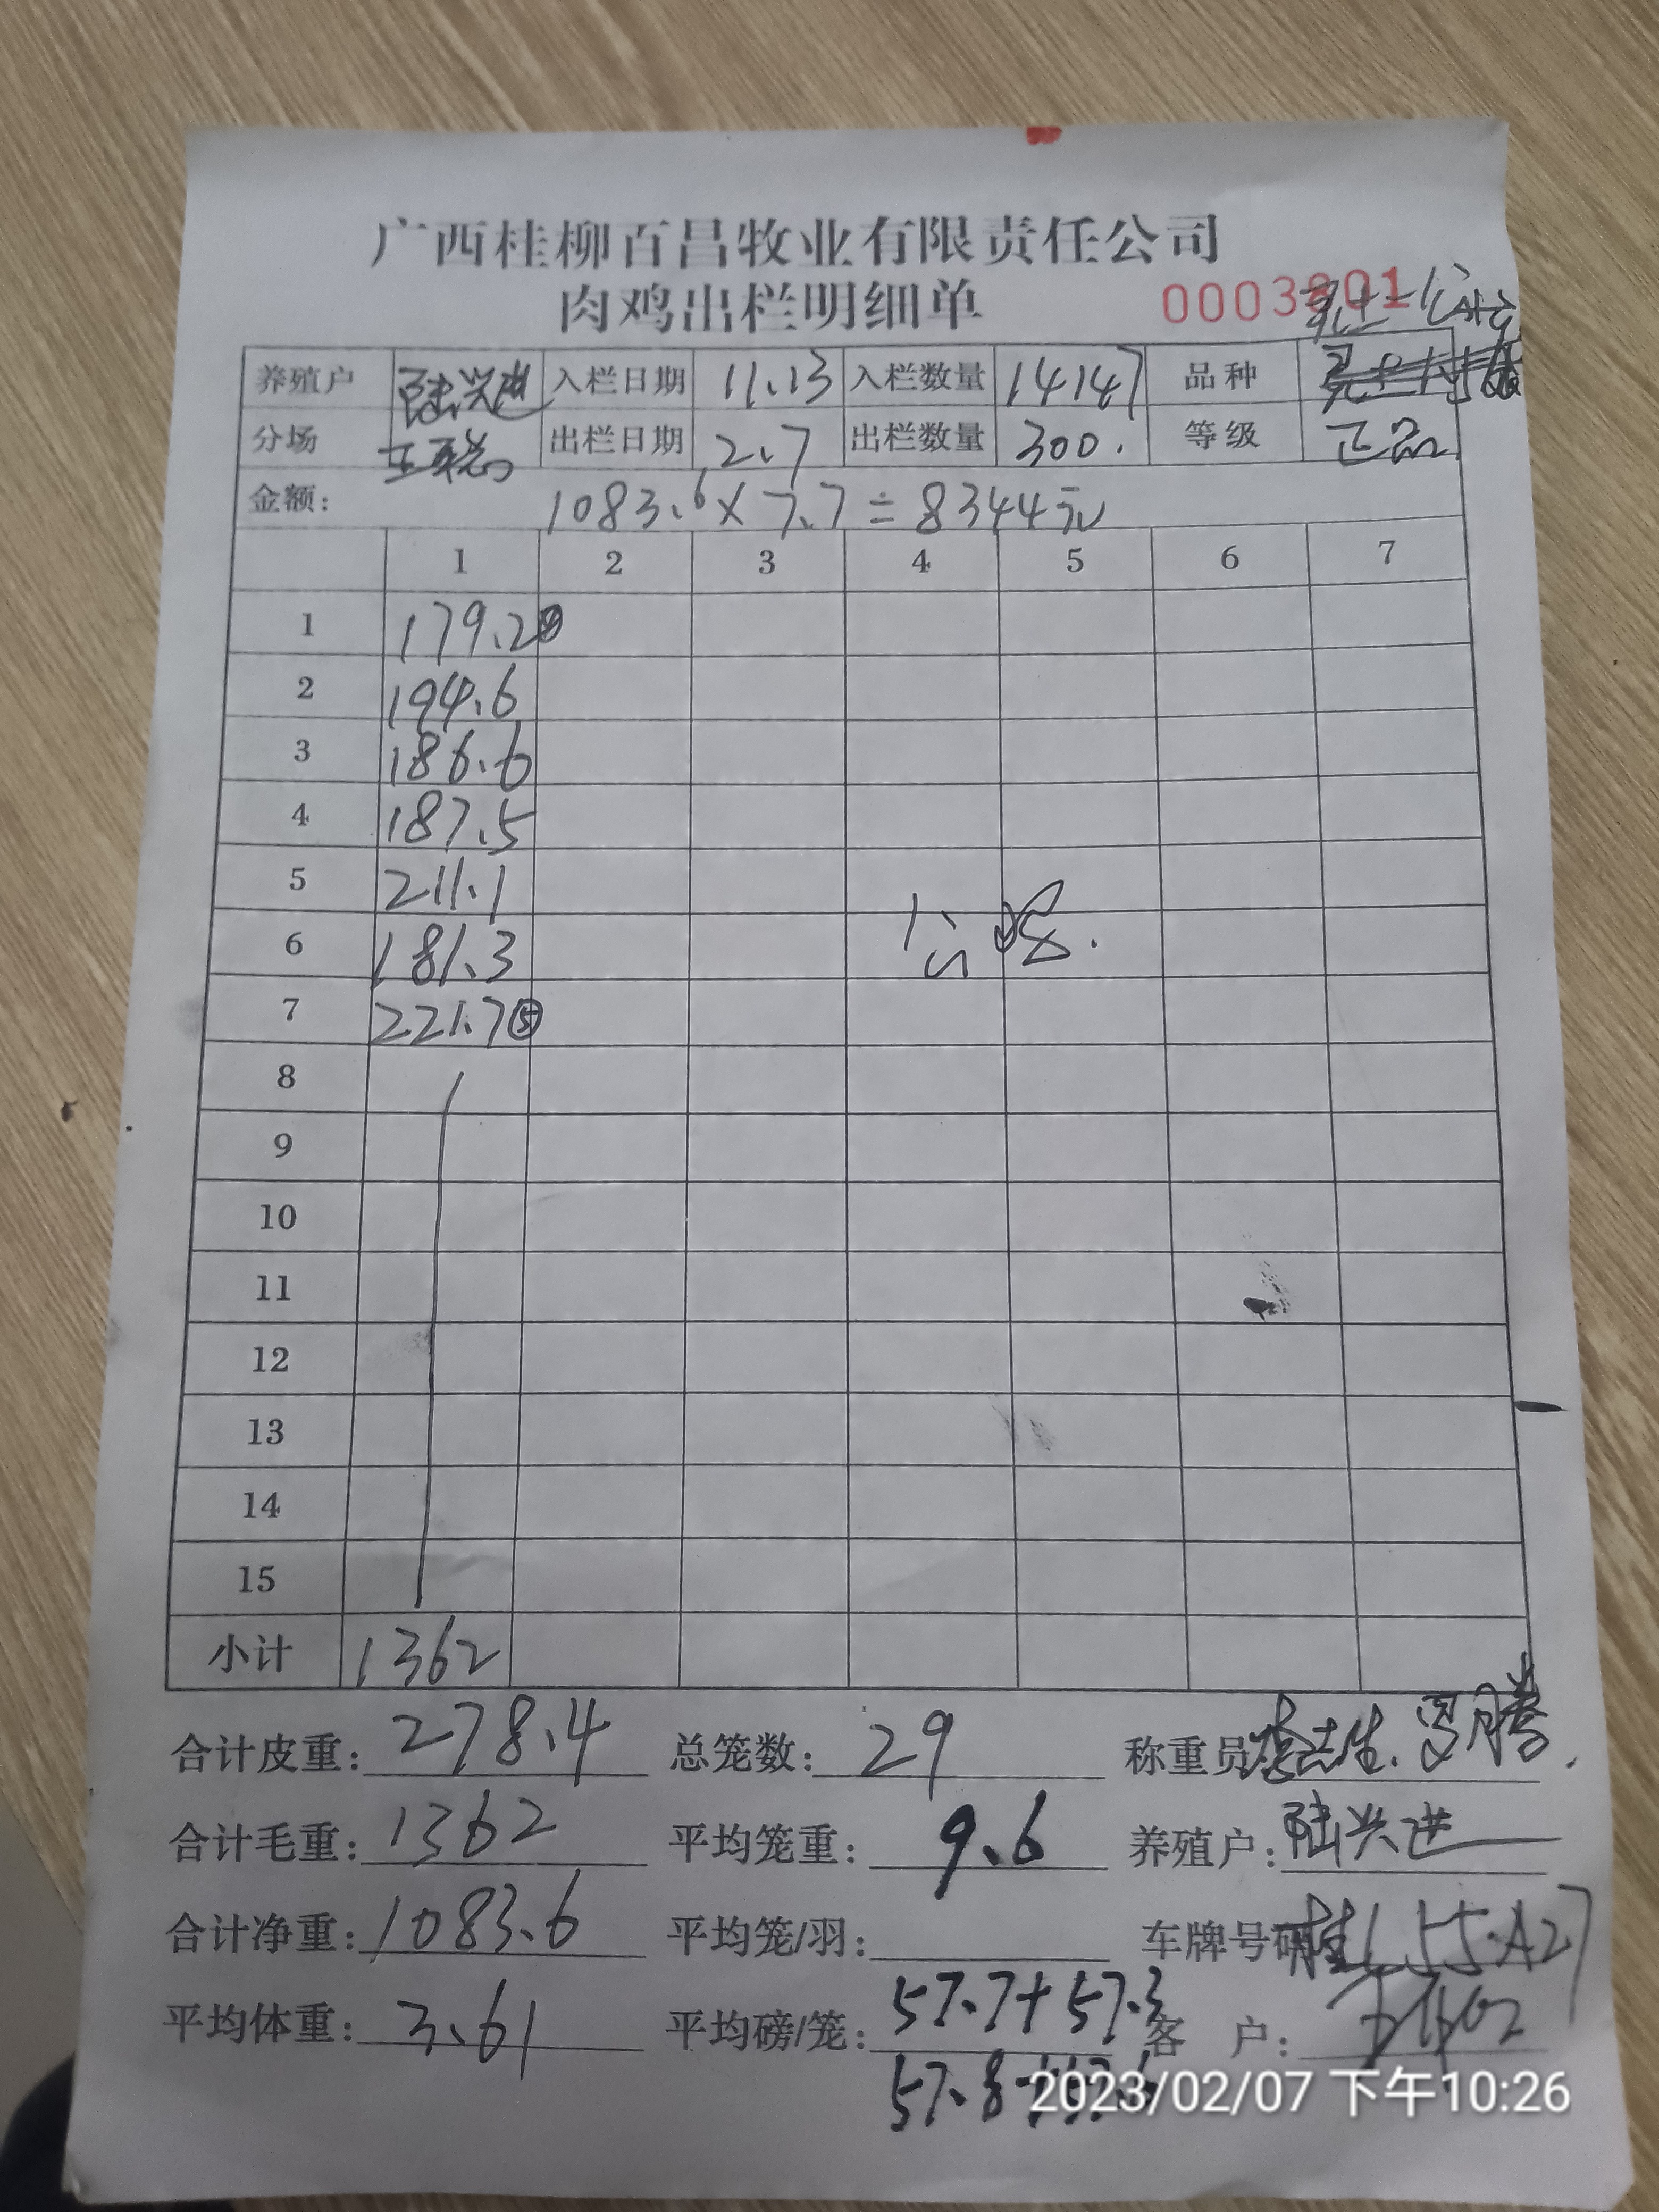 广西桂柳百昌牧业有限责任公司
肉鸡出栏明细单
养殖户 陆兴进 入栏日期 11.13 入栏数量 14147 品种
分场 出栏日期 2.7 出栏数量 300. 等级 正品
金额: 1083.6×7.7=8344元
1 2 3 4 5 6 7
1 179.2
2 194.6
3 186.6
4 187.5
5 211.1
6 181.3
7 221.7⑤
8
9
10
11
12
13
14
15
小计 1362
合计皮重: 278.4 总笼数: 29 称重员
合计毛重: 1362 平均笼重: 9.6 养殖户: 陆兴进
合计净重: 1083.6 平均笼/羽: 车牌号码 桂L 55·A27
平均体重: 3.61 平均磅/笼: 57.7+57.3 客 户:
57.8
2023/02/07 下午10:26